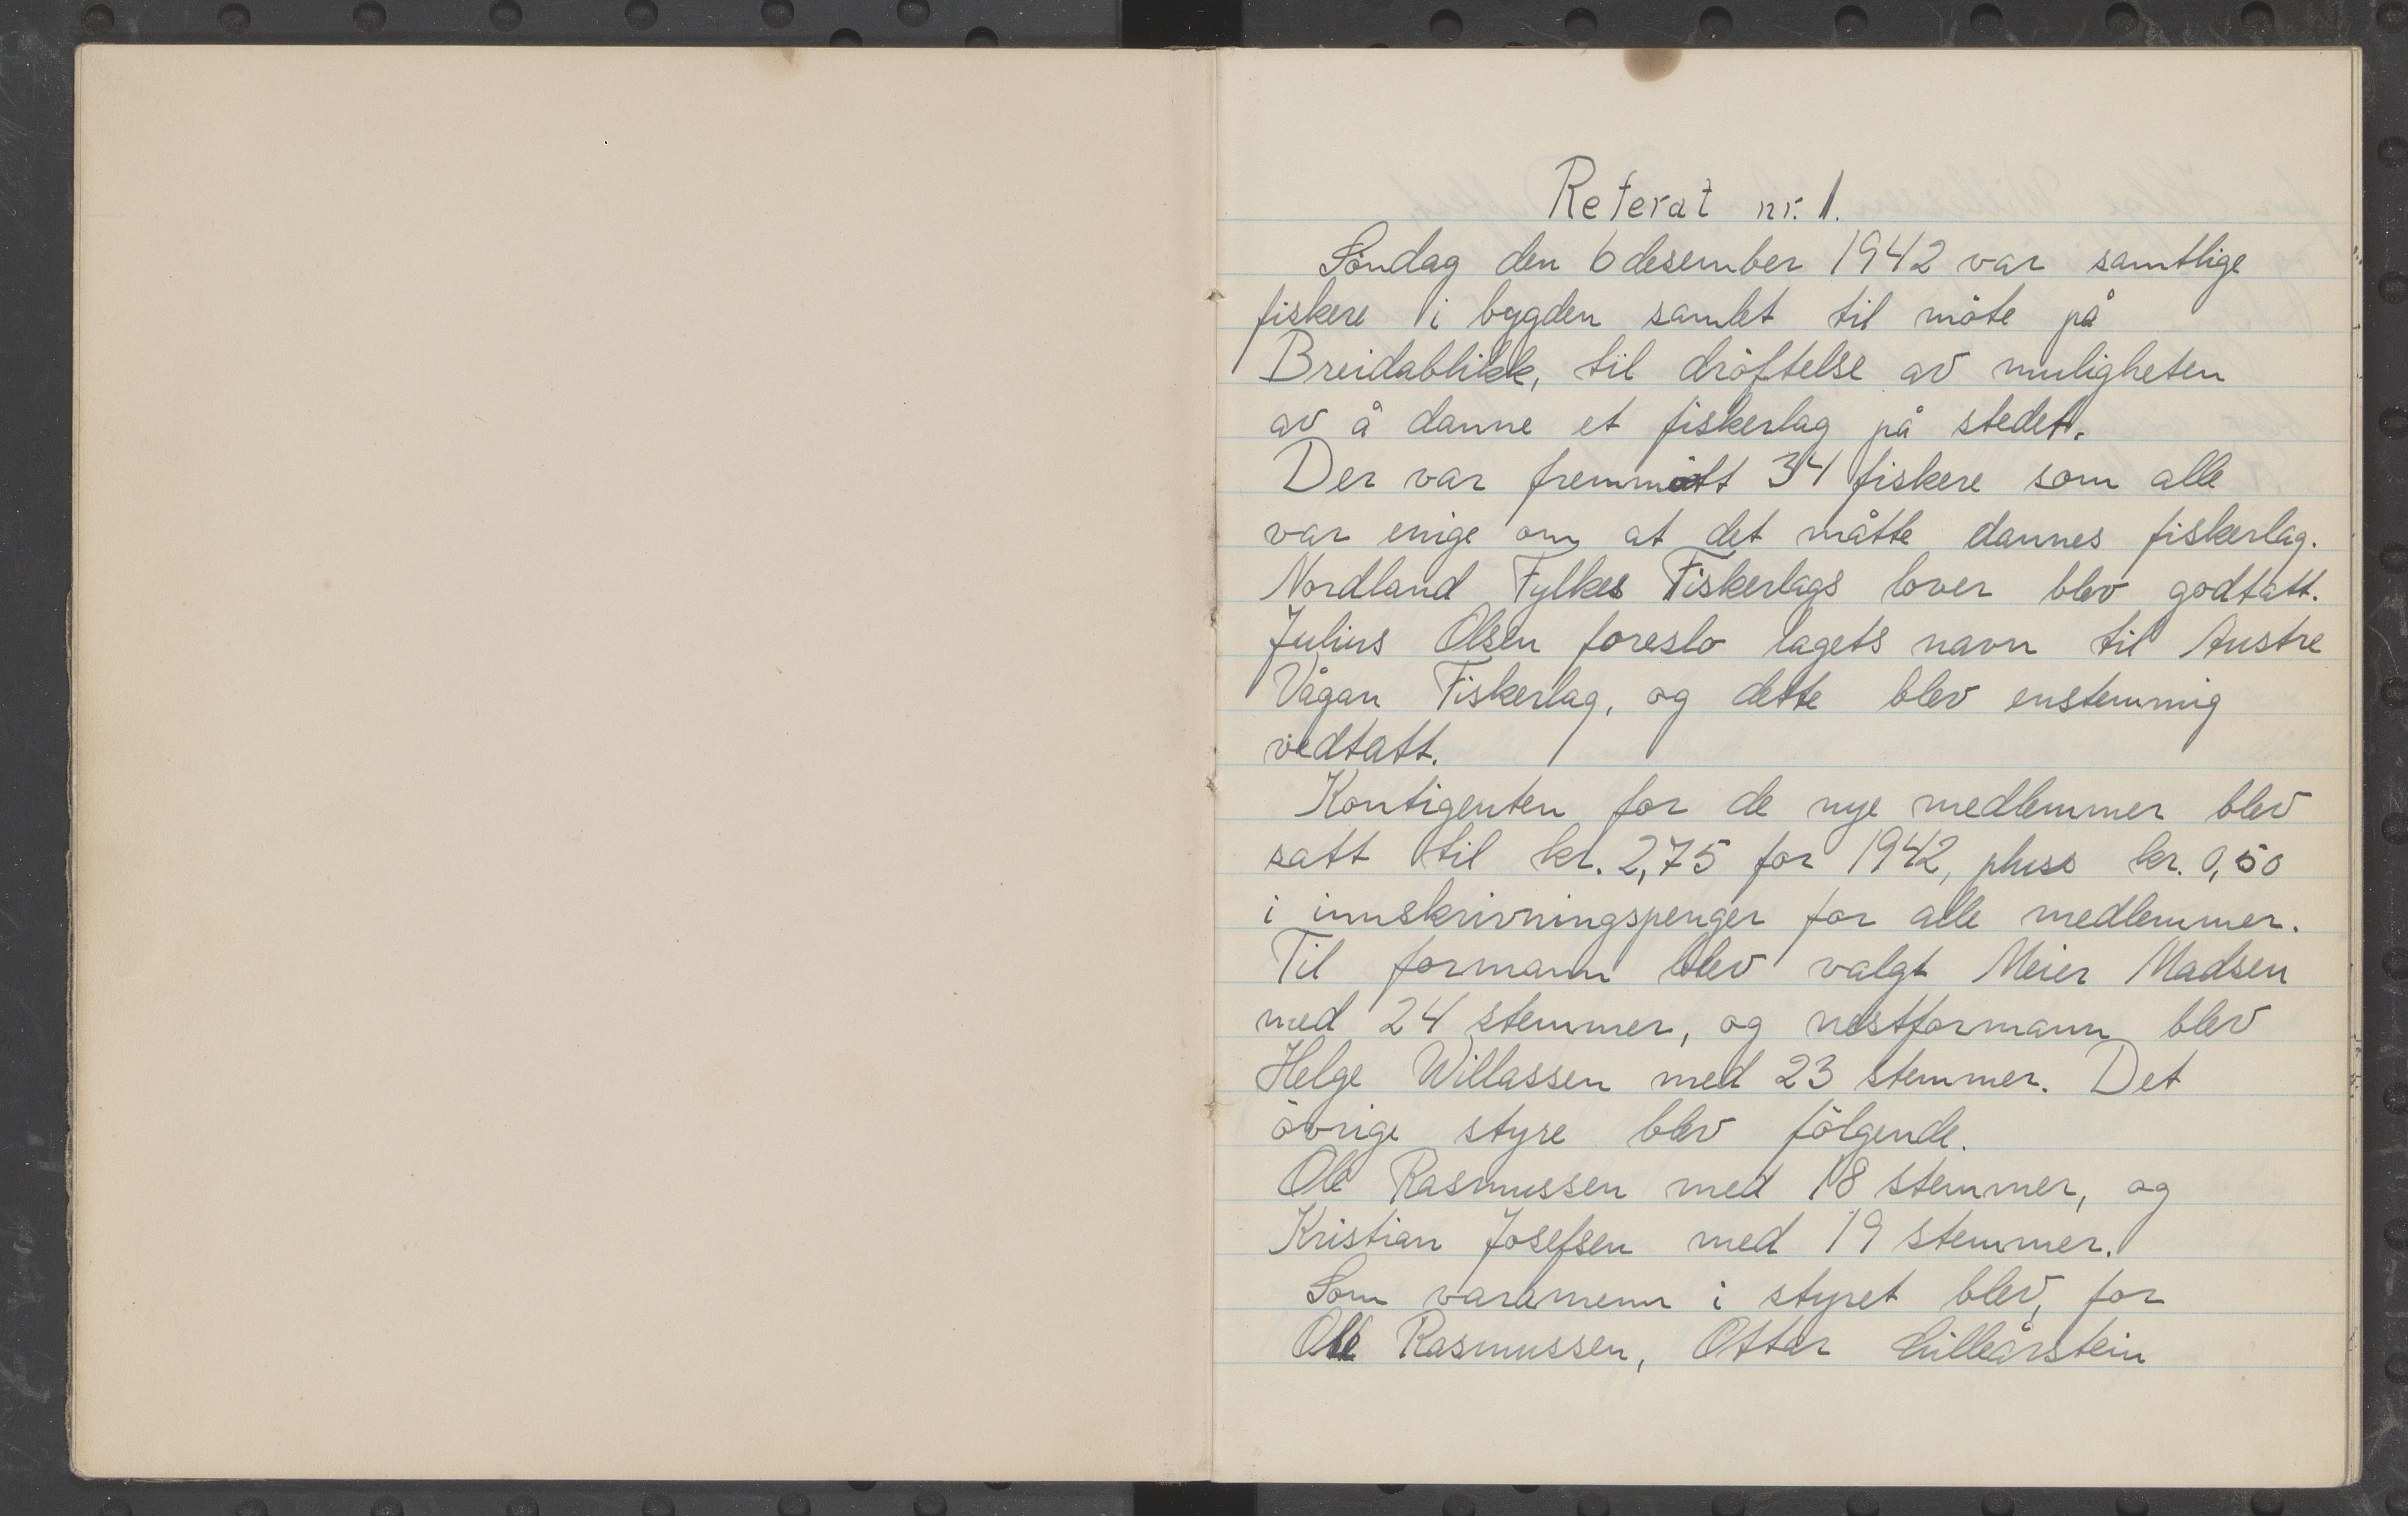 Referat nr. 1.
Söndag den 6 desember 1942 var samtlige
fiskere i bygden samlet til möte på
Breidablikk, til dröftelse av muligheten
av å danne et fiskerlag på stedet.
Der var fremmött 34 fiskere som alle
var enige om at det måtte dannes fiskerlag.
Nordland Fylkes Fiskerlags lover blev godtatt.
Julius Olsen foreslo lagets navn til Austre
Vågan Fiskerlag, og dette blev enstemmig
vedtatt.
Kontigenten for de nye medlemmer blev
satt til kr. 2,75 for 1942, pluss kr. 0,50
i innskrivningspenger for alle medlemmer.
Til formann blev valgt Meier Madsen
med 24 stemmer, og nestformann blev
Helge Willassen med 23 stemmer. Det
övrige styre blev fölgende.
Ole Rasmussen med 18 stemmer, og
Kristian Josefsen med 19 stemmer.
Som varamenn i styret blev, for
Ole Rasmussen, Ottar Lilleårstein